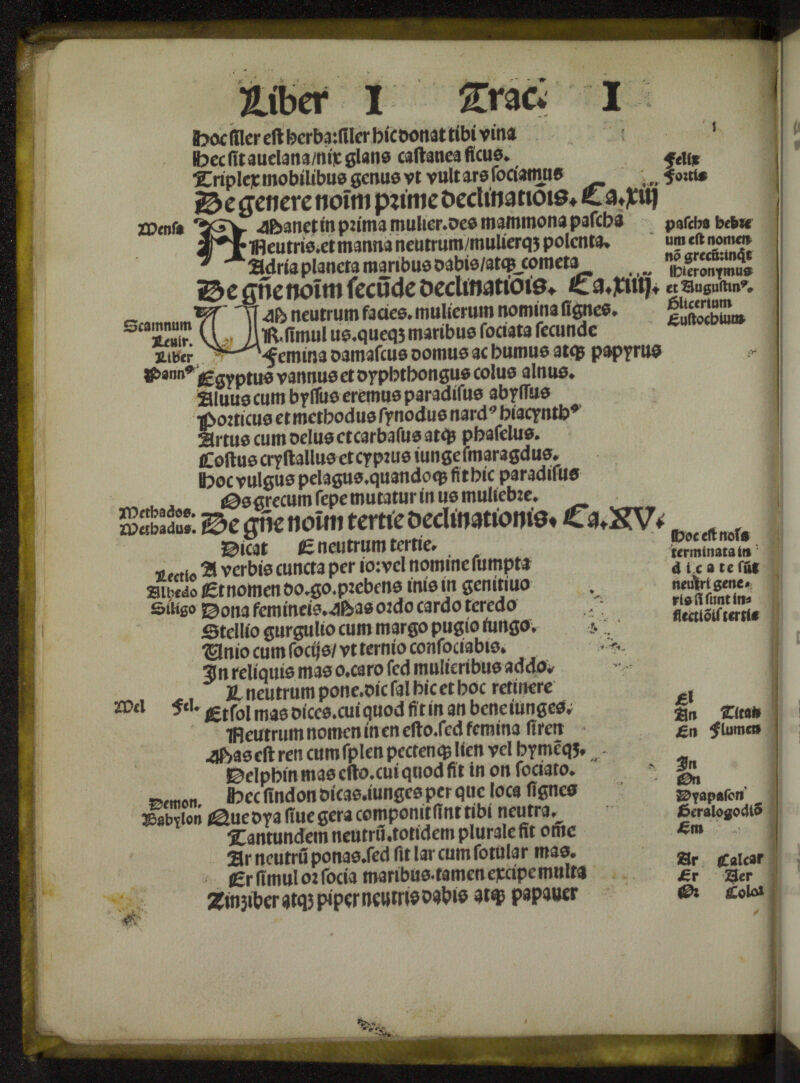 Liber I Trac. I
Hoc siler est herba: siler hic donat tibi vina
Hec sit auelana/nix glans castanea ficus.
Triplex mobilibus genus vt vult ars sociamus
Felix
Fortis
De genere noim prime declinatiōis. Ca. xiij
Mensa
A Manet in prima mulier. des mammona pascha
Neutris. et manna neutrum/mulierqꝫ polenta.
Adria planeta maribus dabis/atqꝫ cometa
pascha hebre
um est nomen
nō grecū: inqͥt
Hieronymus
et Augustinꝰ.
De gñe noim secūde declinatiōis. Ca. xiiij.
Ulicertum
Eustochium
Scamnum
Leuir.
Liber
UM neutrum facies. mulierum nomina signes.
R. simul us. queqꝫ maribus sociata secunde
Femina damascus domus ac humus atqꝫ papyrus
Pannꝰ
Egyptus vannus et dyphthongus colus alnus.
Aluus cum byssus eremus paradisus abyssus
Porticus et methodus synodus nardꝰ hiacynthꝰ
Artus cum delus et carbasus atqꝫ phaselus.
Costus crystallus et cyprus iunge smaragdus.
Hoc vulgus pelagus. quandoqꝫ sit hic paradisus
Os grecum sepe mutatur in us muliebre.
Methados.
Methadus.
De gñe noim tertie declinationis. Ca. XV.
Dicat E neutrum tertie.
Lectio
A verbis cuncta per io: vel nomine sumpta
Albedo
Et nomen do. go. prebens inis in genitiuo
Siligo
Dona femineis. Mas ordo cardo teredo
Hoc est nota
terminata in
dicate sūt
neutri gene-
ris si sunt in
flectiōis tertie
Stellio gurgulio cum margo pugio iungo.
Unio cum socijs/ vt ternio consociabis.
In reliquis mas o. caro sed mulieribus addo.
L neutrum pone. dic sal hic et hoc retinere
Mel Fel.
Et sol mas dices. cui quod fit in an bene iunges.
Neutrum nomen in en esto. sed femina siren
Mas est ren cum splen pectenqꝫ lien vel hymēqꝫ.
Delphin mas esto. cui quod fit in on sociato.
El
An Titan
En Flumen
In
On
Demon.
Babylon
Hec sindon dicas. iunges per que loca signes
Que dya siue gera componit sint tibi neutra.
Dyapason
Geralogodiō
Tantundem neutrū. totidem plurale fit omē
Em
Ar neutrū ponas. sed fit lar cum sotular mas.
Er simul or socia maribus. tamen excipe multa
Zinziber atqꝫ piper neutris dabis atqꝫ papauer
Ar Calcar
Er Aer
Or Color